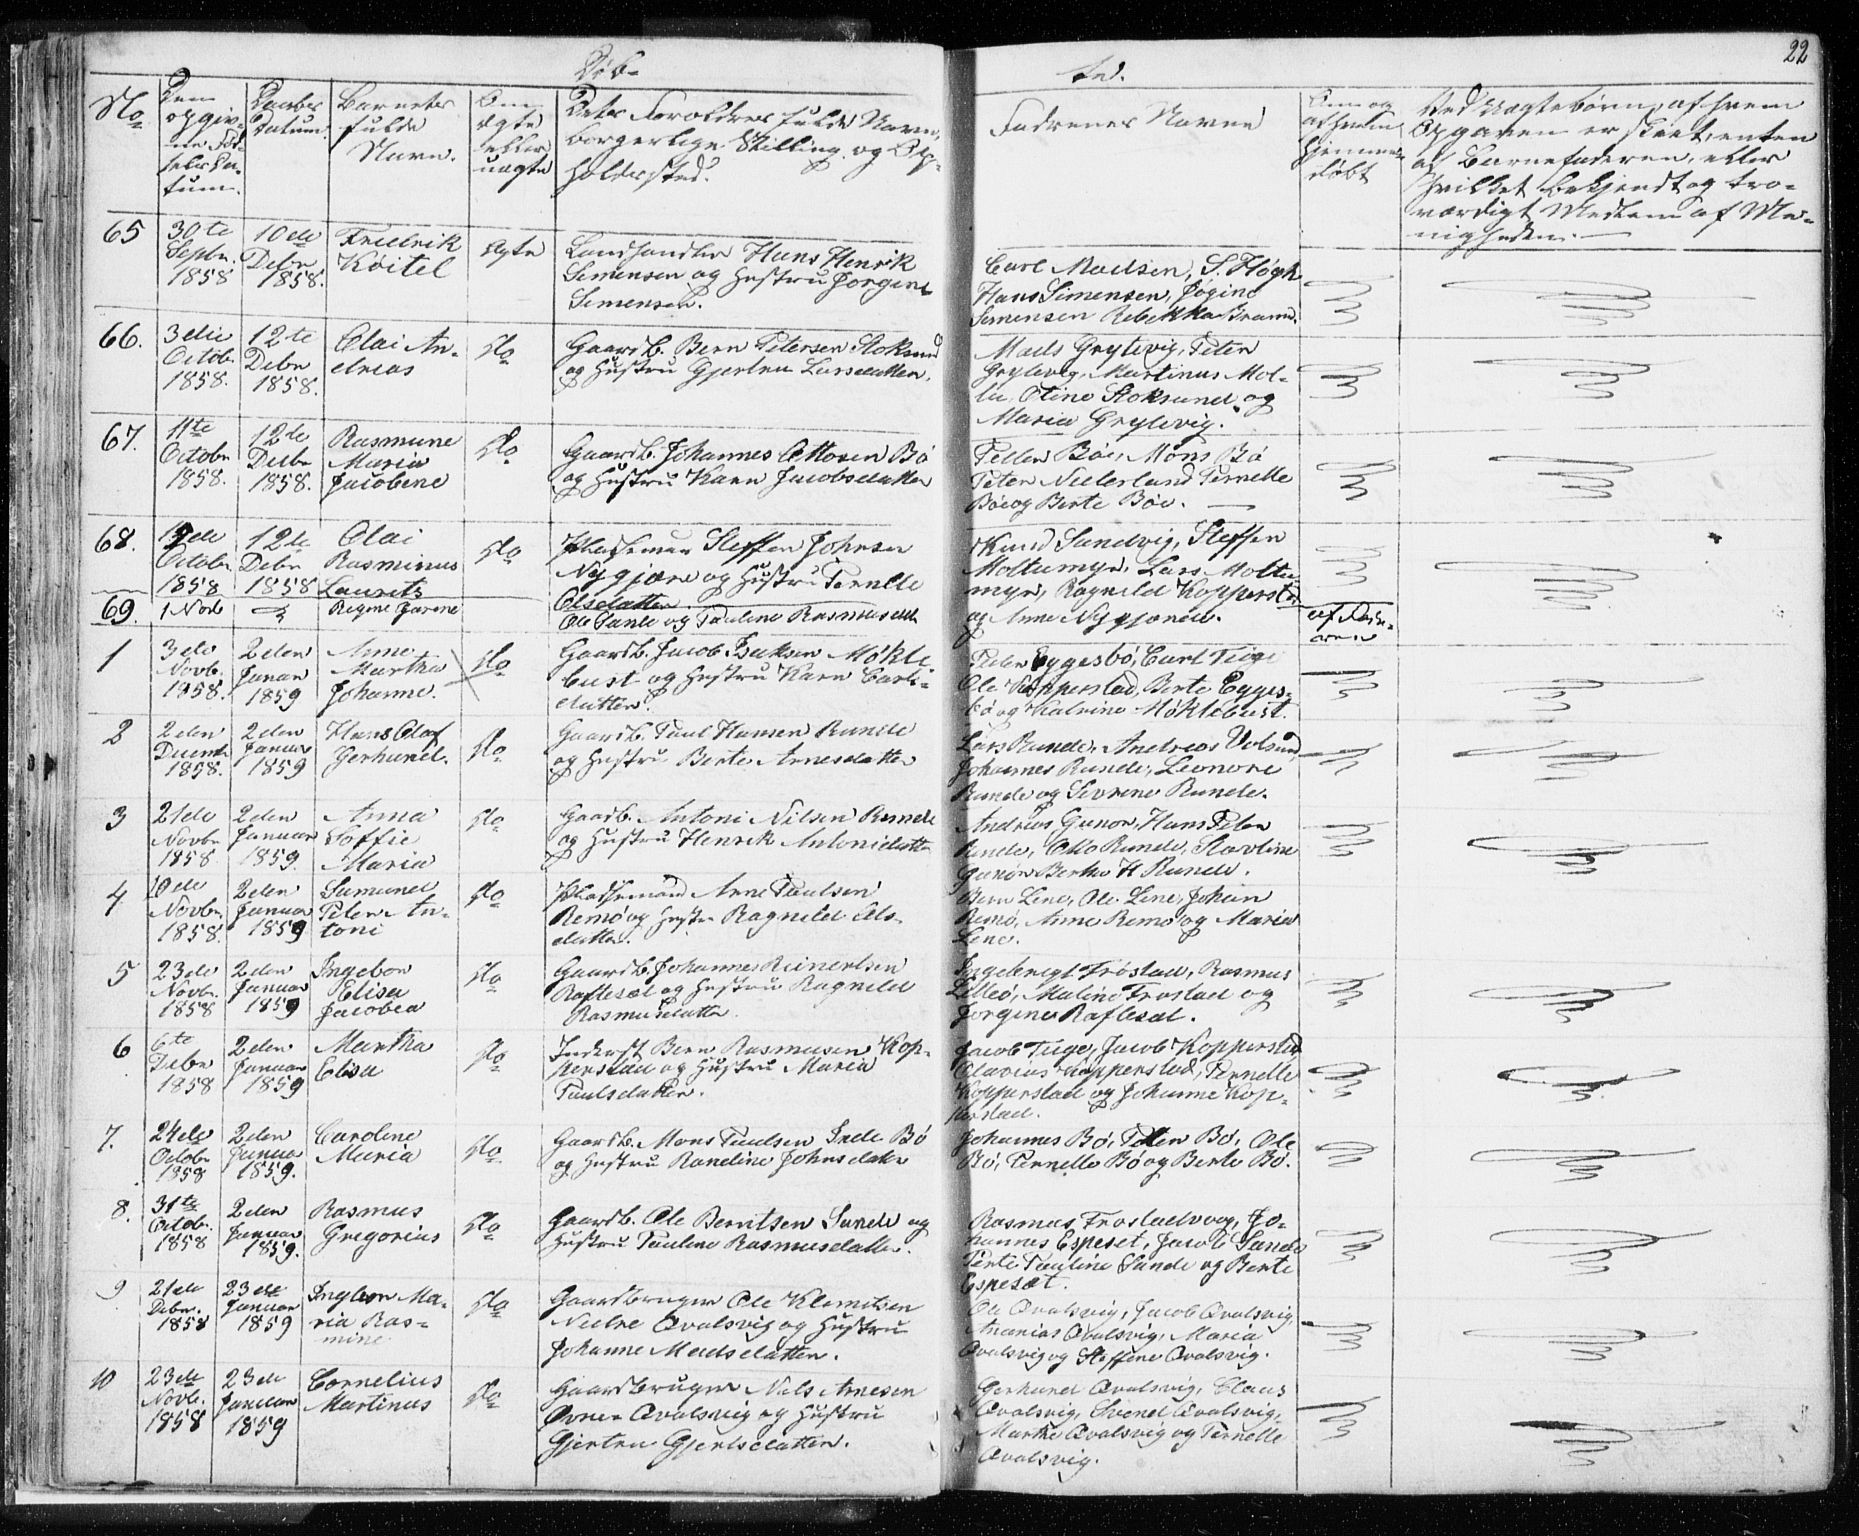 22
Døb-
te.
No
Den opgivne Fødsels Datum.
Daabs Datum.
Barnets fulde Navn.
Om ægte eller uægte
Dets Foreldres fulde Navn, borgerlige Stilling og Opholdssted.
Faddernes Navne
Om og af hvem hjemmedøbt
Ved uægte børn, af hvem Opgaven er skeet, enten af Barnefaderen, eller hvilket bekjendt og troværdigt Medlem af Menigheden.
65
30te Septbr. 1858
10de Debr 1858.
Fredrik
Køitel
Ægte
Landhandler Hans Henrik
Simensen og Hustru Jørgine
Simensen.
Carl Madsen, S. Høgh
Hans Simensen, Jøgine
Simensen Rebekka Brand.
66.
3die Octob. 1858.
12te Debr 1858.
Olai An-
dreas
do
Gaardb. Bern Petersen Stoksund
og Hustru Gjertru Larsdatter.
Mads Grytevig, Peter
Grytevig, Martinus Mol-
tu, Otine Stoksund og
Maria Grytevig.
67.
11te Octobr 1858.
12te Debr 1858.
Rasmune
Maria
Jacobine
do
Gaardb. Johannes Ottosen Bø
og Hustru Karn Jacobsdatter
Petter Bøe, Mons Bø
Peter Nederland Pernelle
Bøe og Berte Bøe.
68.
12de Octobr 1858
12te Debr 1858
Olai
Rasminus
Laurits
do
Pladseman Steffen Johnsen
Nygjære og Hustru Pernelle
Olsdatter
Knud Sandvig, Steffen
Moltumyr, Lars Moltu
myr, Ragnild Koppersta
og Anne Nygjære.
69.
1 Novb
Regine Gurine
Ole Sande og Pauline Rasmusdatt
1
3die Novb. 1858.
2den Januar 1859
Anne
Martha
Johanne.
do
Gaardb. Jacob Isaksen Møkle
bust og Hustru Karn Carls-
datter.
Peter Eggesbø, Carl Tuge
Ole Kopperstad, Berte Egges-
bø og Katrine Møklebust.
2
2den Decemb 1858.
2den Januar 1859
Hans Olaf
Gerhard.
do
Gaardb. Paul Hansen Runde
og Hustru Berte Arnesdatter
Lars Runde, Andreas Volsund
Johannes Runde, Leonore
Runde og Severine Runde.
3
21de Novbr 1858
2den Januar 1859.
Anna
Soffie
Maria
do
Gaardb. Antoni Nilsen Runde
og Hustru Henrik Antonidatte
Andreas Gunon, Hans Peter
Runde, Otto Runde, Karoline
Berthe H Runde.
4
10de Novbr. 1858.
2den Januar 1859
Samunel
Peter An-
toni
do
Pladsemand Arne Paulsen
Remø og Hustru Ragnild Ols-
datter.
Bern Lene, Ole Lene, Johan
Remø, Anne Remø og Maria
Lene.
5
23de Novbr. 1858
2den Januar 1859
Ingebor
Elisa
Jacobea
do
Gaardb. Johannes Reinertsen
Raftesæt og Hustru Ragnild
Rasmusdatter.
Ingebrigt Frøstad, Rasmus
Lilleø, Maline Frostad og
Jorgine Raftesæt.
6
6te Debr 1858
2den Januar 1859
Martha
Elisa
do
Inderst Bern Rasmusen Kop-
perstad og Hustru Maria
Paulsdatter.
Jacob Tuge, Jacob Kopperstad
Olavius Kopperstad, Pernelle
Kopperstad og Johanne Kop-
perstad.
7.
24de Octobr 1858
2den Januar 1859.
Caroline
Maria
do
Gaardb. Mons Paulsen Indr Bø
og Hustru Randine Johnsdatter
Johannes Bø, Peter Bø, Ole
Bø, Pernelle Bø og Berte Bø.
8.
31te Octob. 1858
2den Januar 1859.
Rasmus
Gregorius
do
Gaardb. Ole Berntsen Sande og
Hustru Pauline Rasmusdatter.
Rasmus Frostadvog, Jo-
hannes Espeset, Jacob Sande
Pauline Sande og Berte
Espesæt.
9
21de Debr. 1858
23de Januar 1859
Ingebor Ma-
ria Ras-
mine
do
Gaardbruger Ole Klemitsen
Nedre Qvalsvig og Hustru
Johanne Madsdatter.
Ole Qvalsvig, Jacob Qvalsvig,
Ananias Qvalsvig, Maria
Qvalsvig og Steffine Qvalsvig.
10
23de Novb. 1858
23de Januar 1859
Cornelius
Martinus
do
Gaardbruger Nils Arnesen
Øvre Qvalsvig og Hustru
Gjertru Gjertsdatter.
Gerhard Qvalsvig, Claus
Qvalsvig, Svend Qvalsvig,
Marthe Qvalsvig og Pernelle
Qvalsvig.